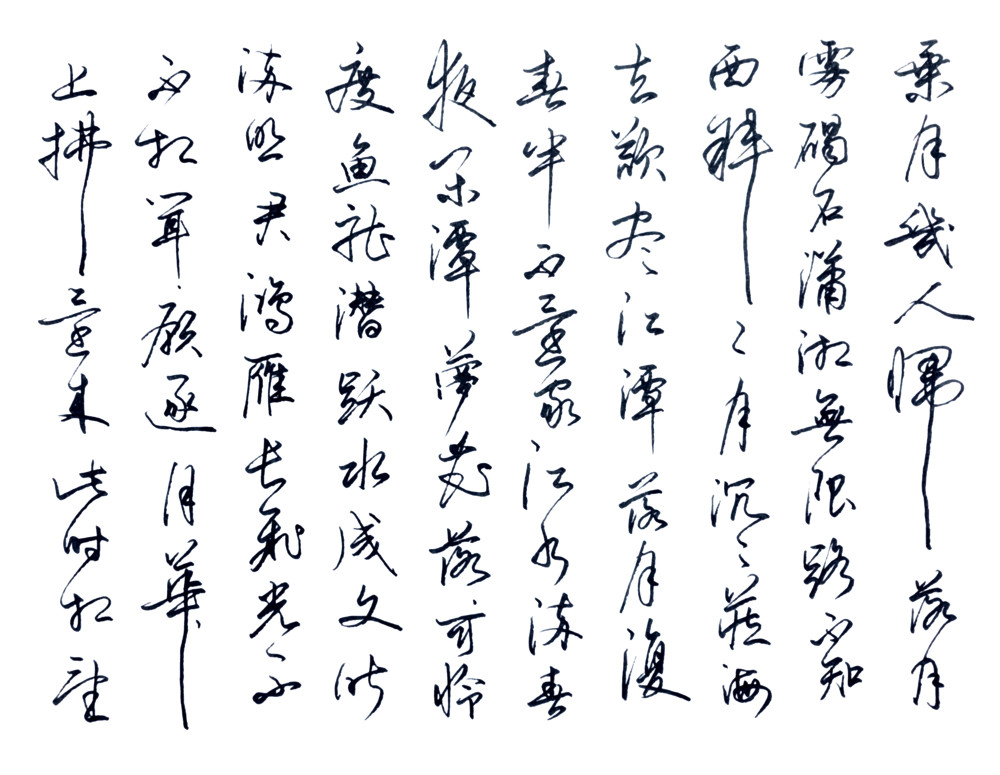 上拂還来此时相望
不相闻愿逐月華
流照君鸿雁长飛光不
度鱼龙潜跃水成文昨
夜闲潭梦花落可怜
春半不還家江水流春
去欲尽江潭落月復
西斜〻月沉〻藏海
雾碣石潇湘無限路不知
乘月幾人歸落月